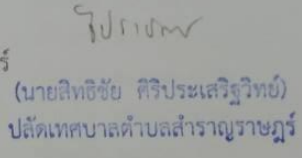 ร์
(นายสิทธิชัย ศิริประเสริฐวิทย์)
ปลัดเทศบาลตำบลสำราญราษฎร์